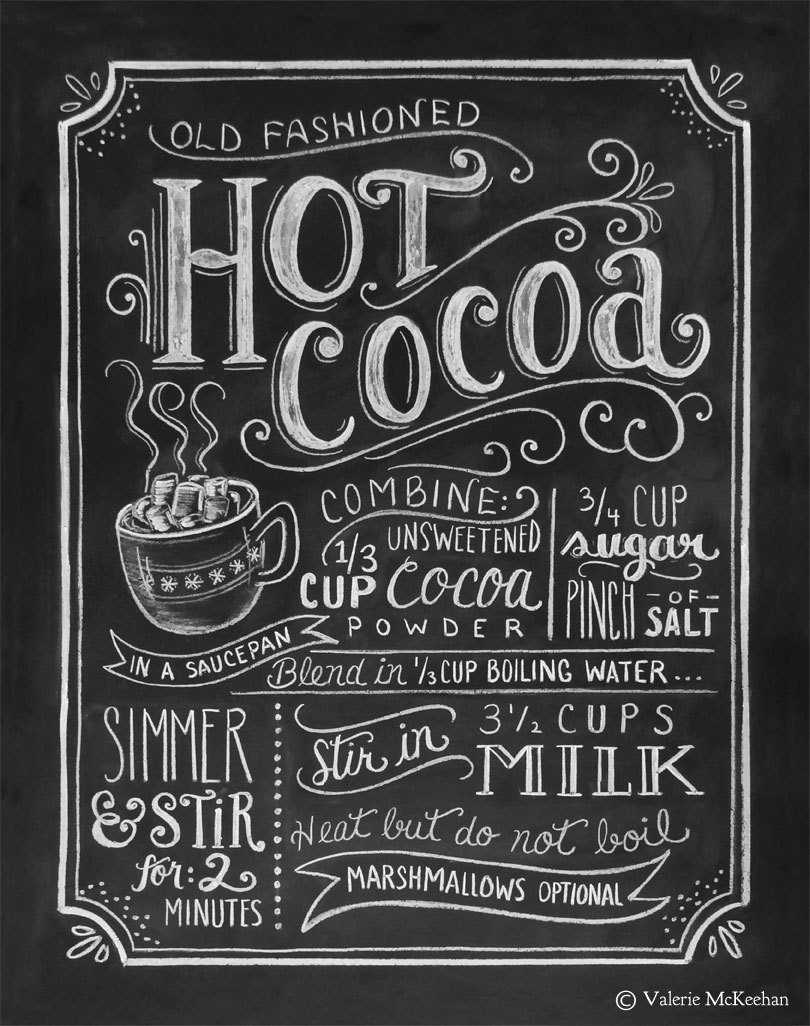 OLD FASHIONED
HOT
COCOA
COMBINE:
1/3 CUP UNSWEETENED Cocoa POWDER
3/4 CUP
sugar
PINCH -OF- SALT
IN A SAUCEPAN
Blend in 1/3 CUP BOILING WATER...
SIMMER
& STIR
for: 2
MINUTES
Stir in
3 1/2 CUPS
MILK
Heat but do not boil
MARSHMALLOWS OPTIONAL
© Valerie McKeehan